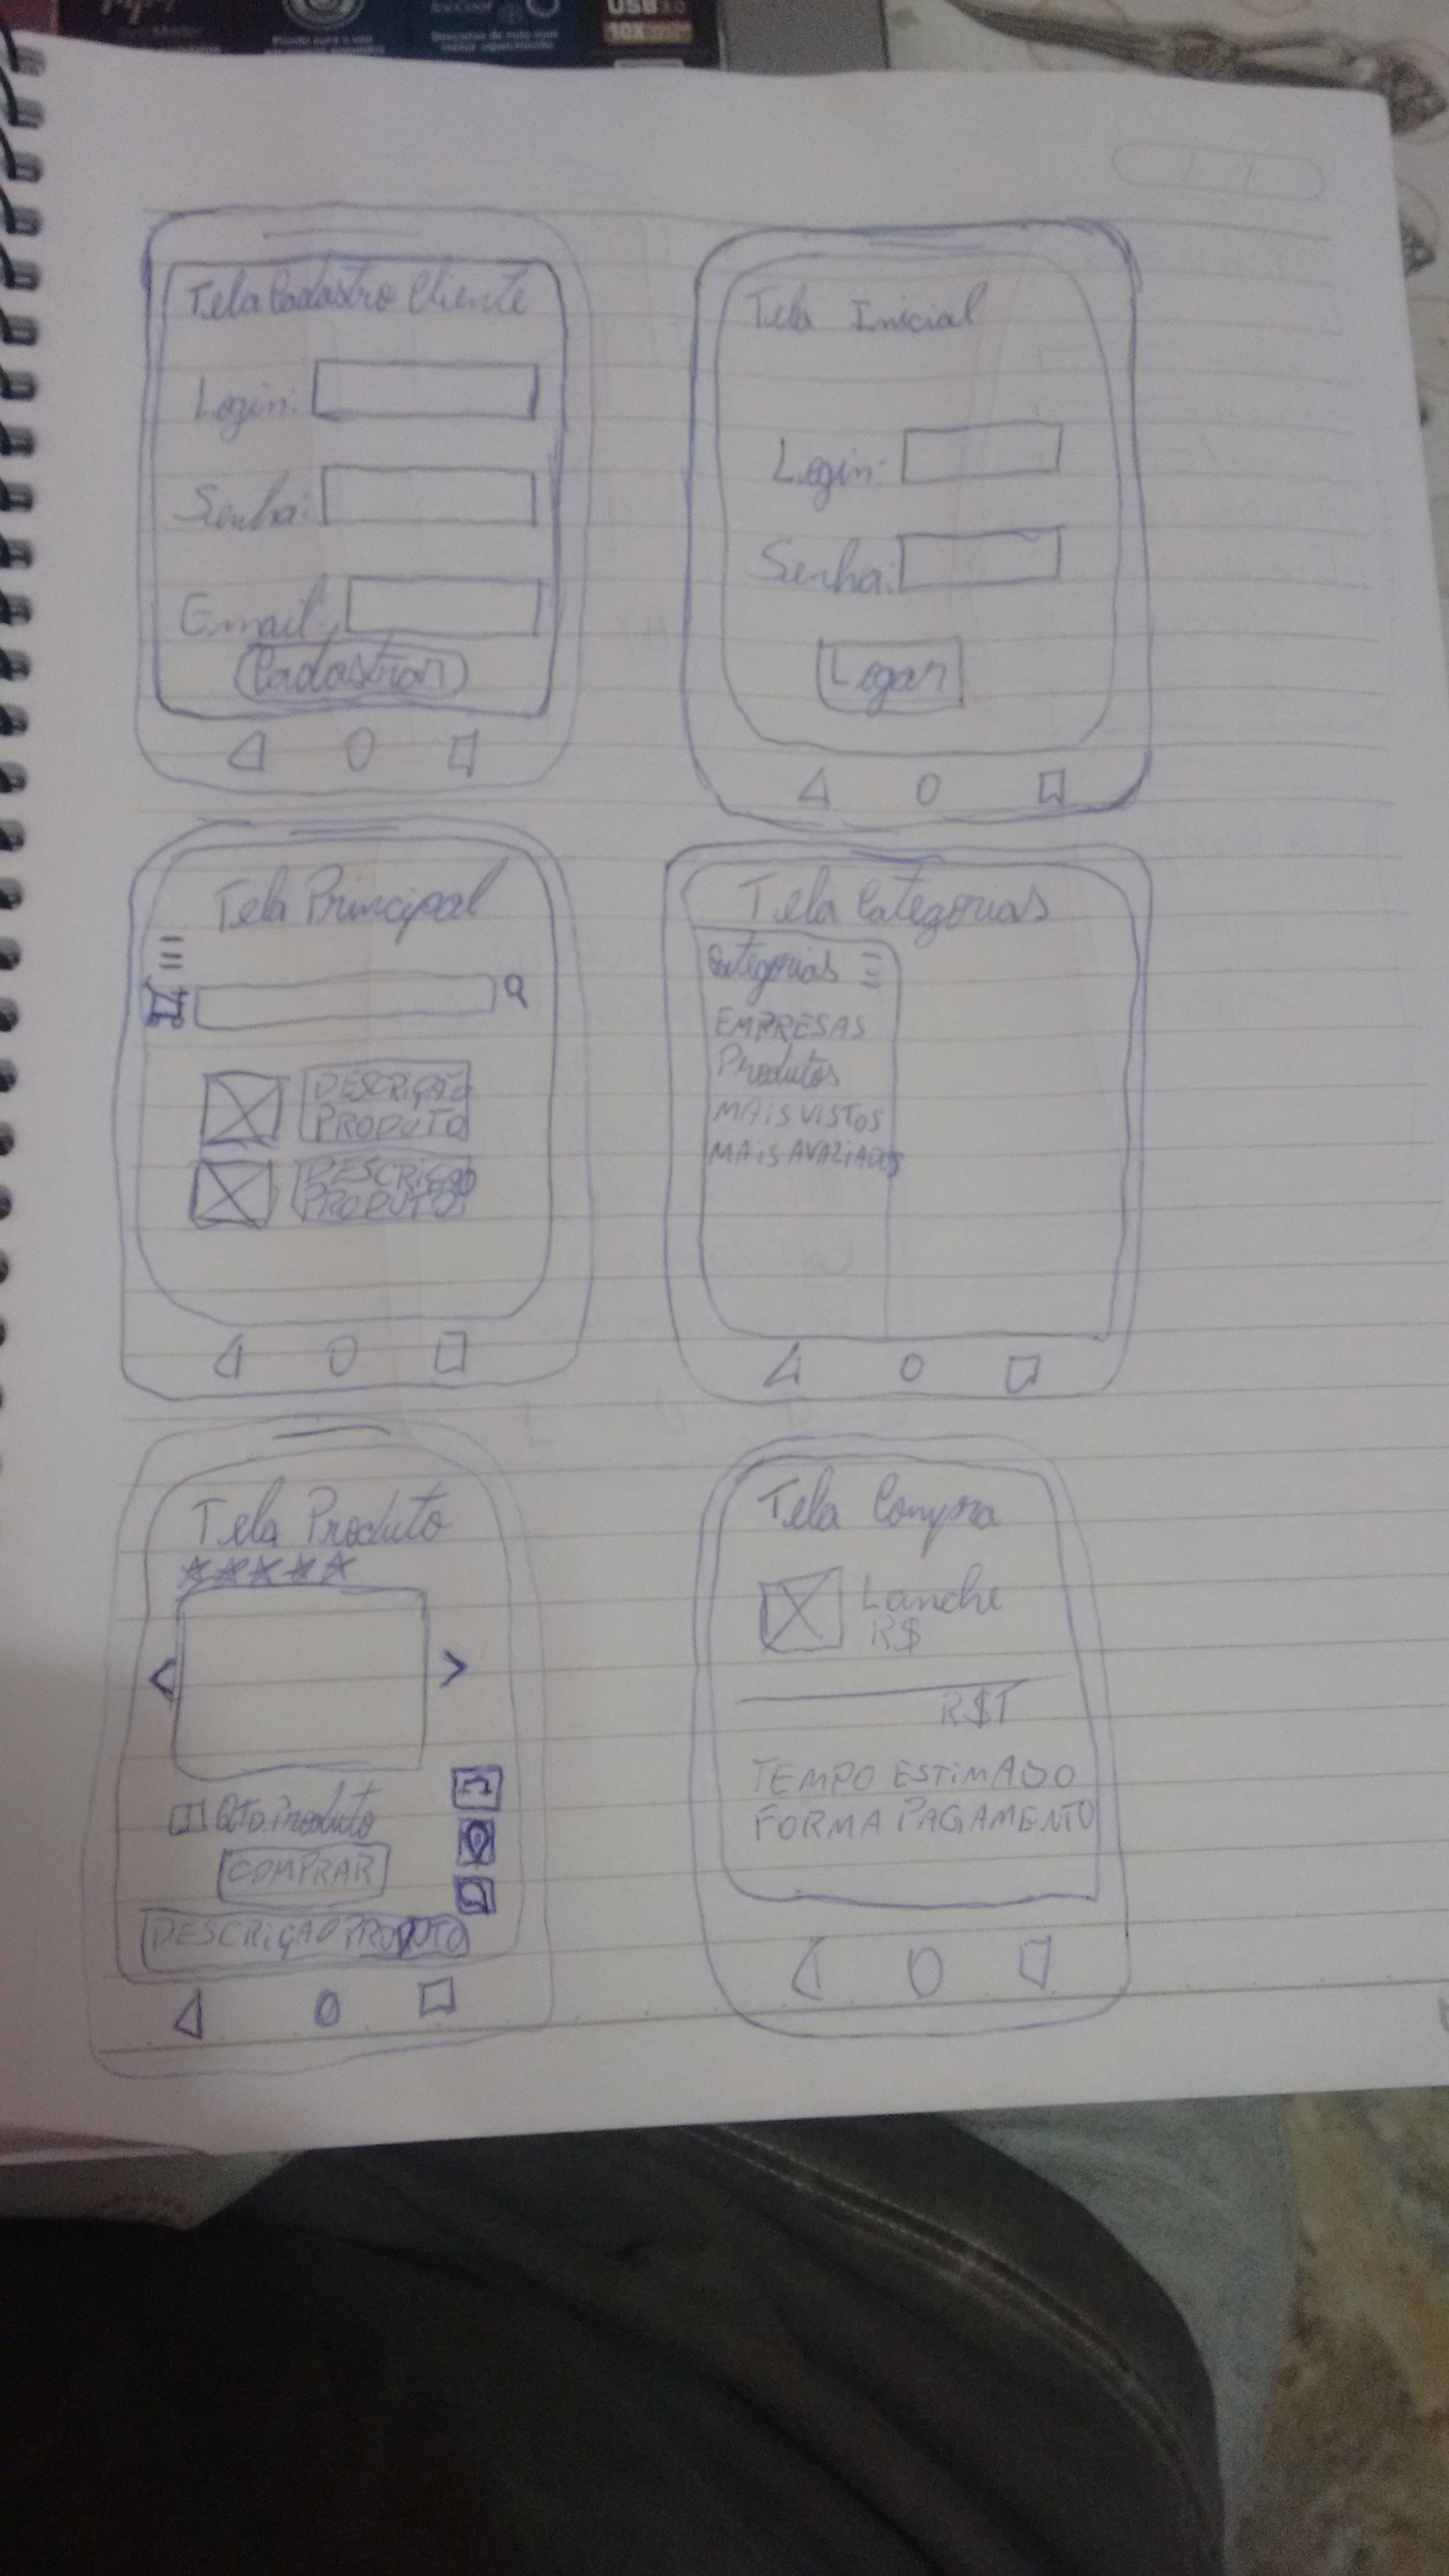 USB 3.0
10X
Tela Cadastro Cliente
Login:
Senha:
Email:
Cadastrar
Tela Inicial
Login:
Senha:
Logar
Tela Principal
DESCRIÇÃO
PRODUTO
DESCRIÇÃO
PRODUTO
Tela Categorias
Categorias
EMPRESAS
Produtos
MAIS VISTOS
MAIS AVALIADOS
Tela Produto
Qtd. Produto
COMPRAR
DESCRIÇÃO PRODUTO
Tela Compra
Lanche
R$
R$T
TEMPO ESTIMADO
FORMA PAGAMENTO